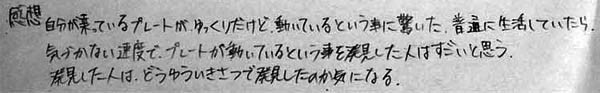 感想 自分が乗っているプレートが、ゆっくりだけど、動いているという事に驚いた。普通に生活していたら、
気づかない速度で、プレートが動いているという事を発見した人はすごいと思う。
発見した人は、どうゆういきさつで発見したのか気になる。